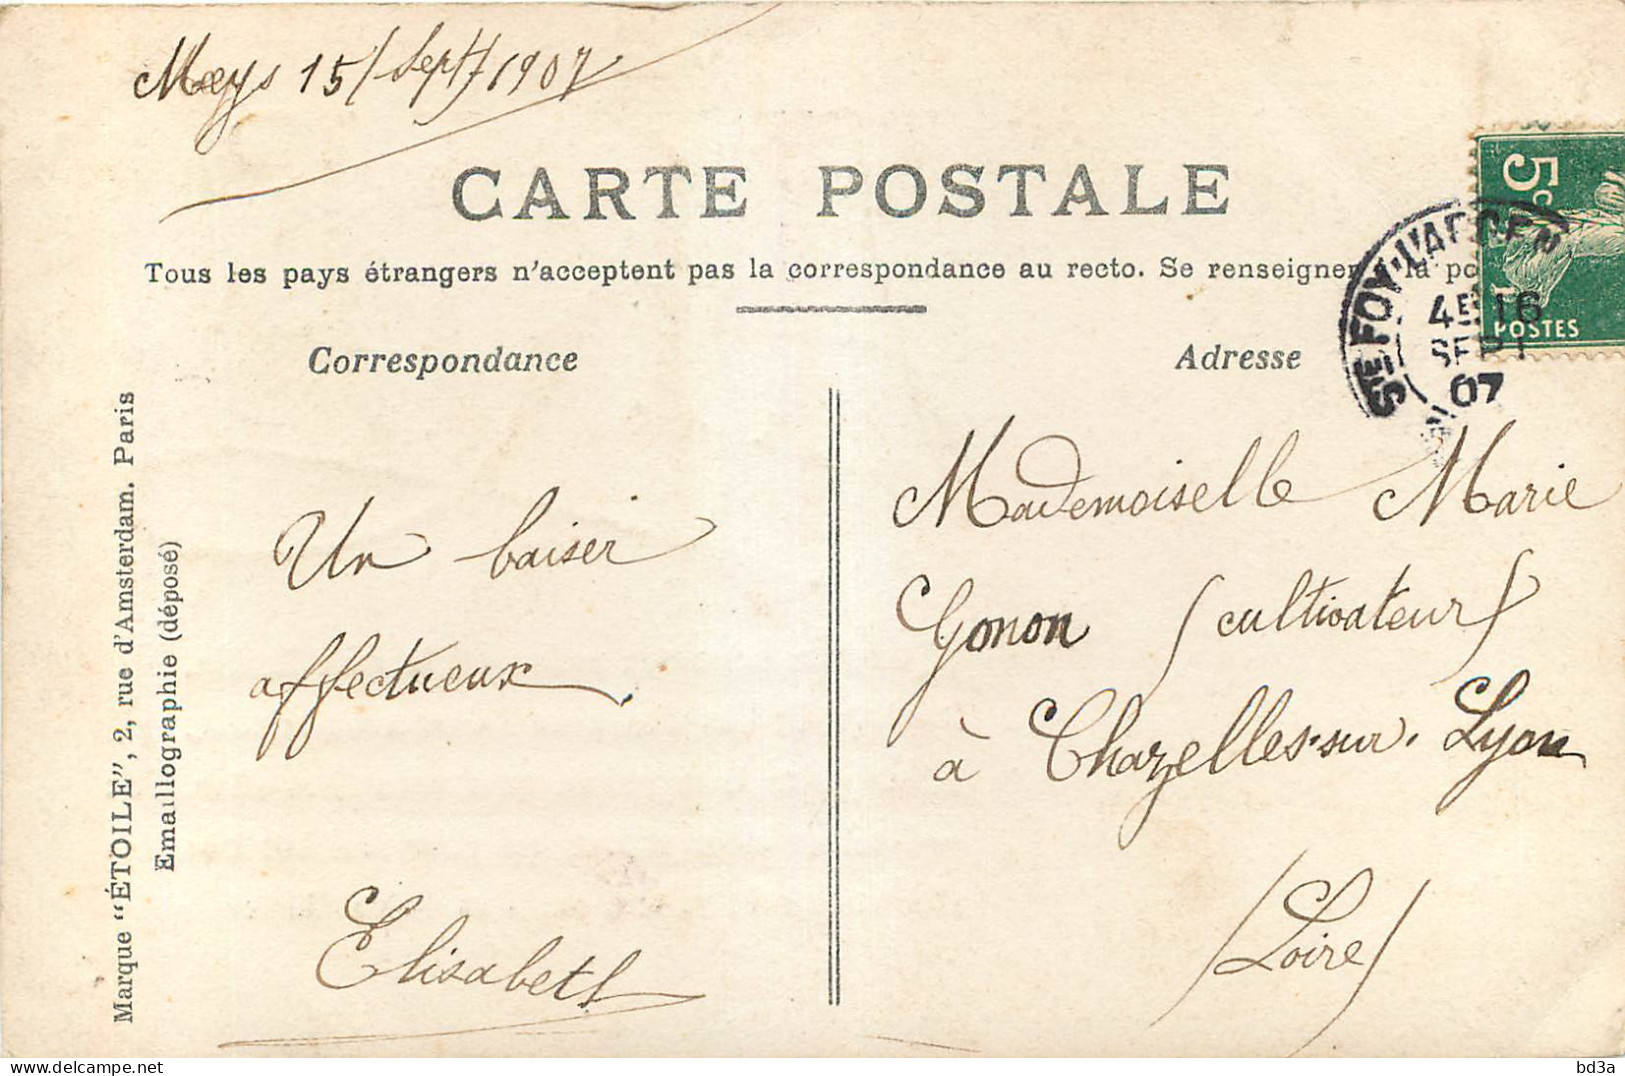 Meys 15/Sept/1907
CARTE POSTALE
Tous les pays étrangers n'acceptent pas la correspondance au recto. Se renseigner la po
Correspondance
Un baiser
affectueux.
Elisabeth
Adresse
Mademoiselle Marie
Gonon (cultivateur)
à Chazelles-sur-Lyon
(Loire)
5c
POSTES
STE FOY-L'ARGEN
4E 16
SEPT
07
Marque "ÉTOILE", 2, rue d'Amsterdam. Paris
Emaillographie (déposé)
bd3a